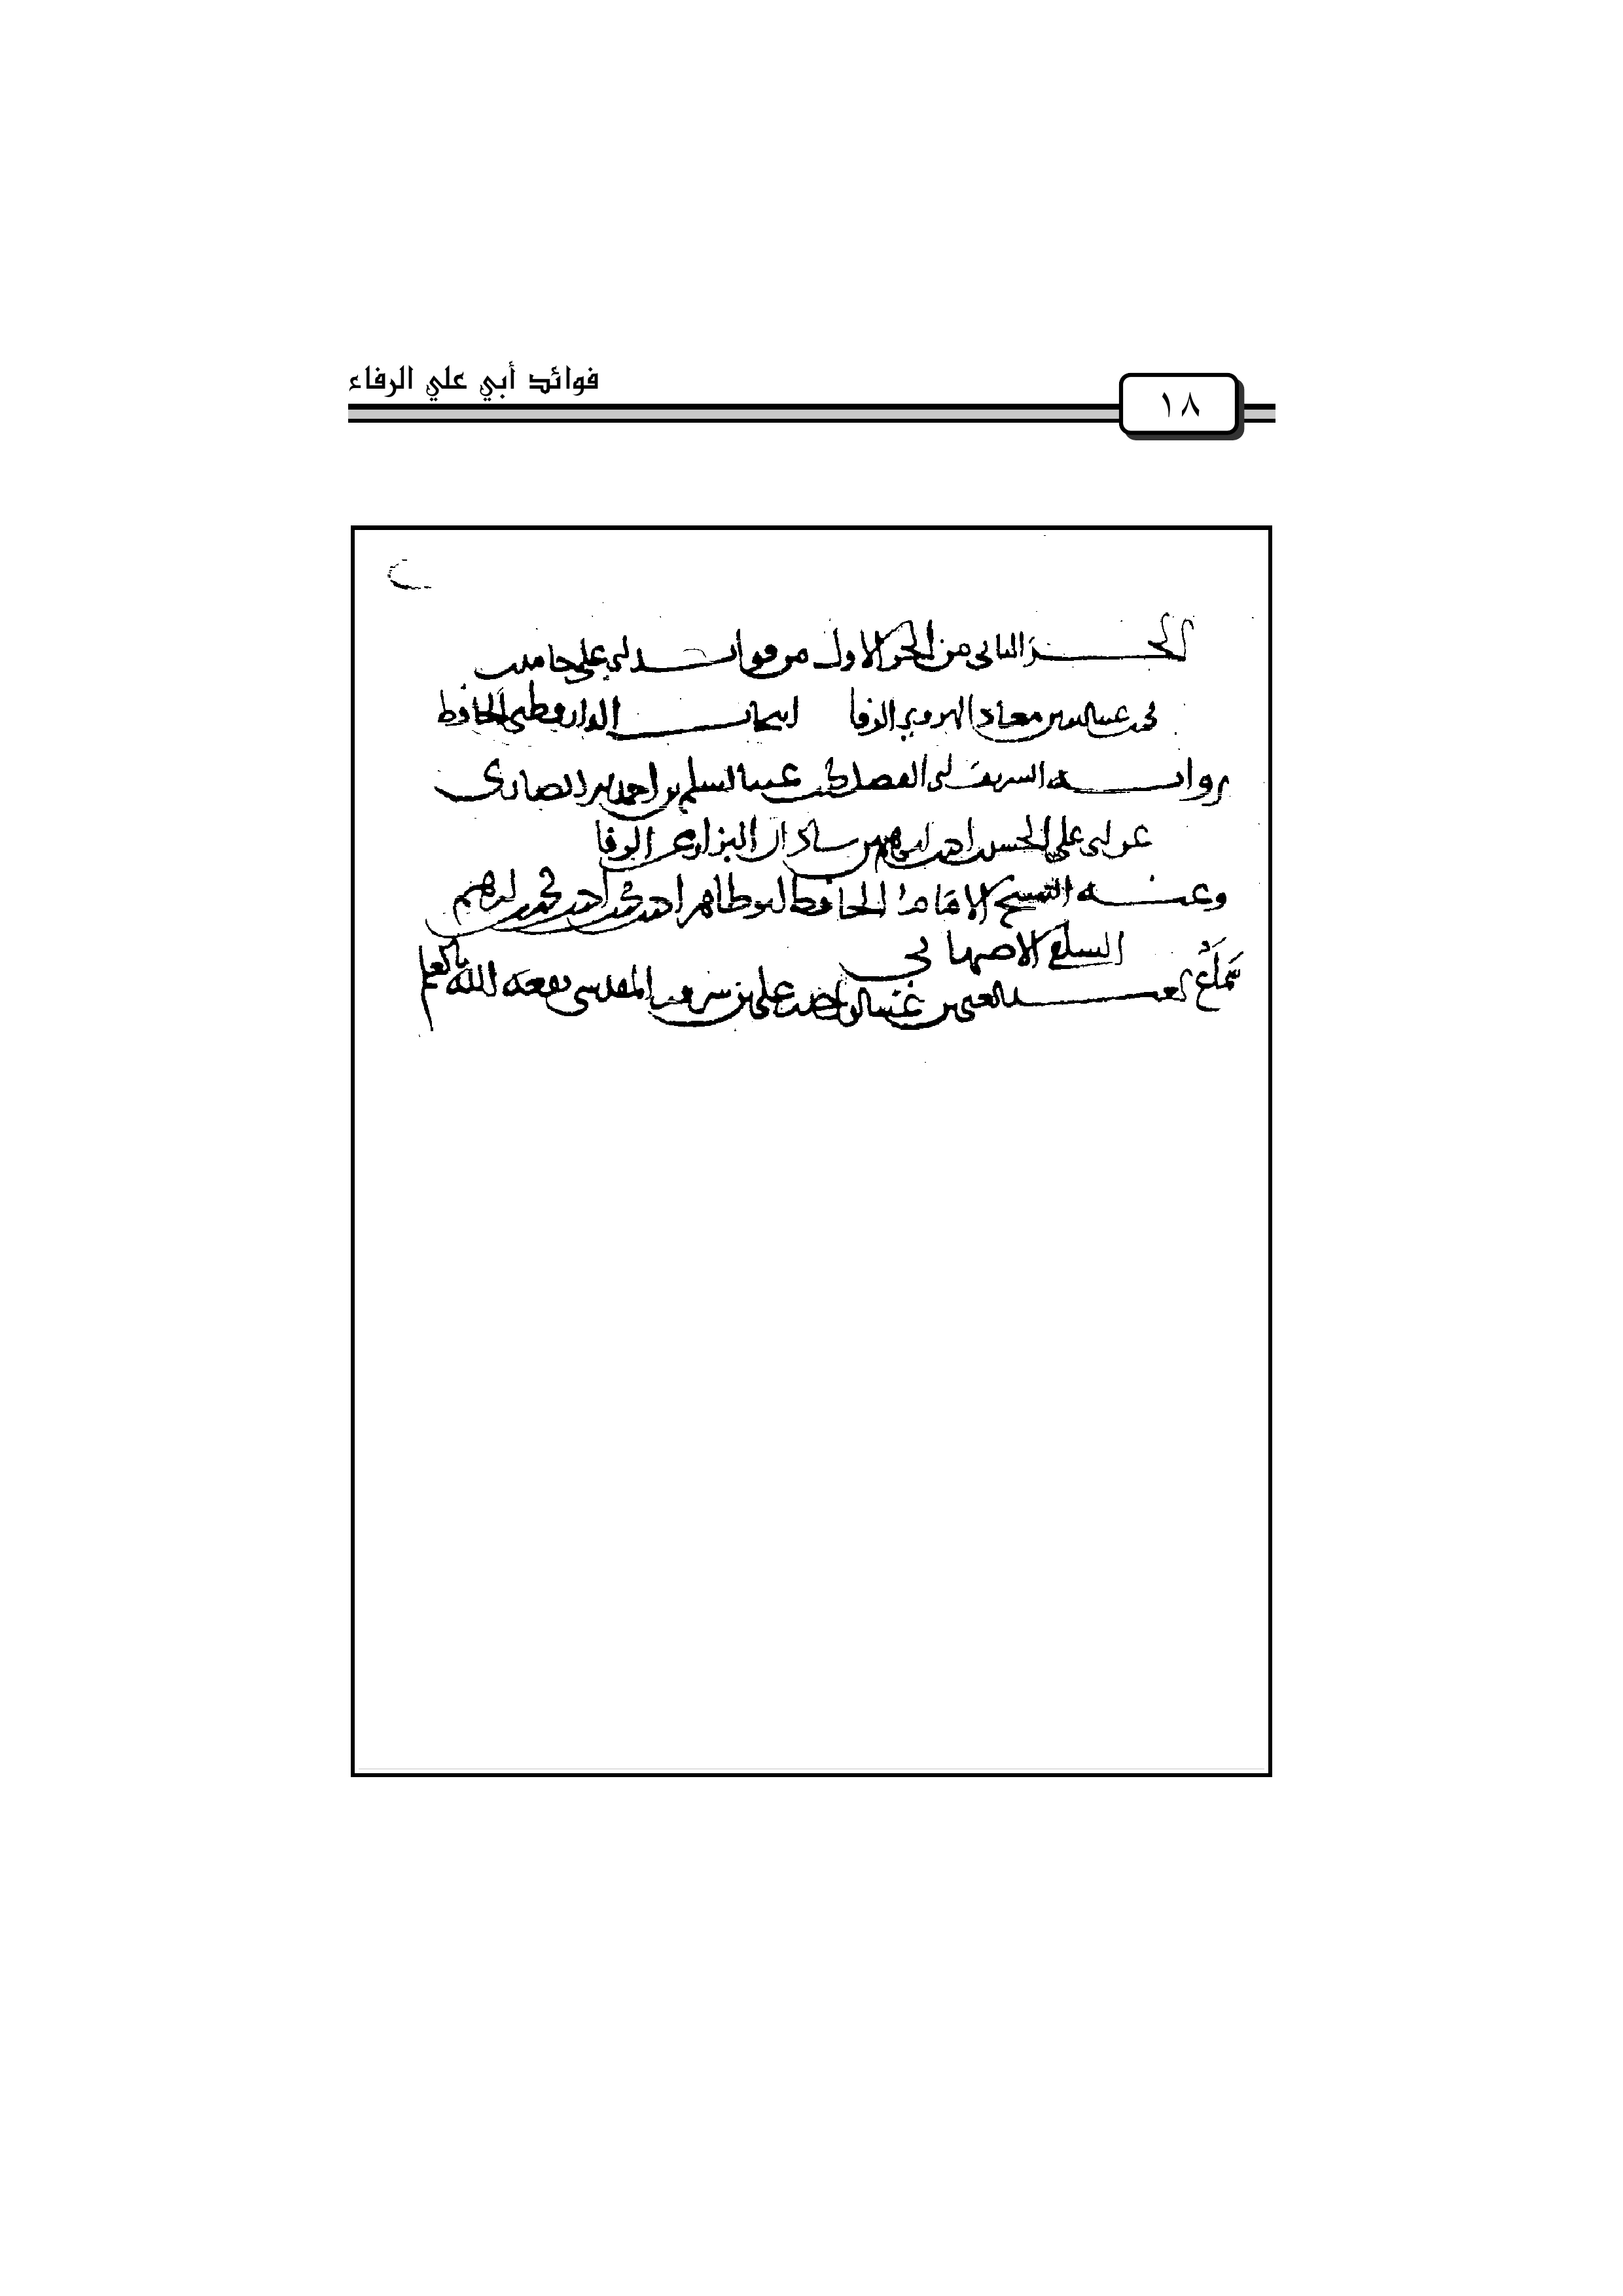 فوائد أبي علي الرفاء
١٨
الجــزء الثاني من الجزء الاول من فوائد ابي علي حامد بن
محمد بن عبد الله بن معاذ الهروي الرفا انتخاب الدارقطني الحافظ
روايــه الشريف ابي الفضل محمد بن عبد السلم بن احمد الانصاري
عن ابي علي الحسن بن احمد بن ابرهيم بن شاذان البزاز عن الرفا
وعنــه الشيخ الامام الحافظ ابو طاهر احمد بن محمد بن احمد بن محمد بن ابرهيم
السلفي الاصبهاني
سماع لعبد الغني بن عبد الواحد بن علي بن سرور المقدسي نفعه الله بالعلم